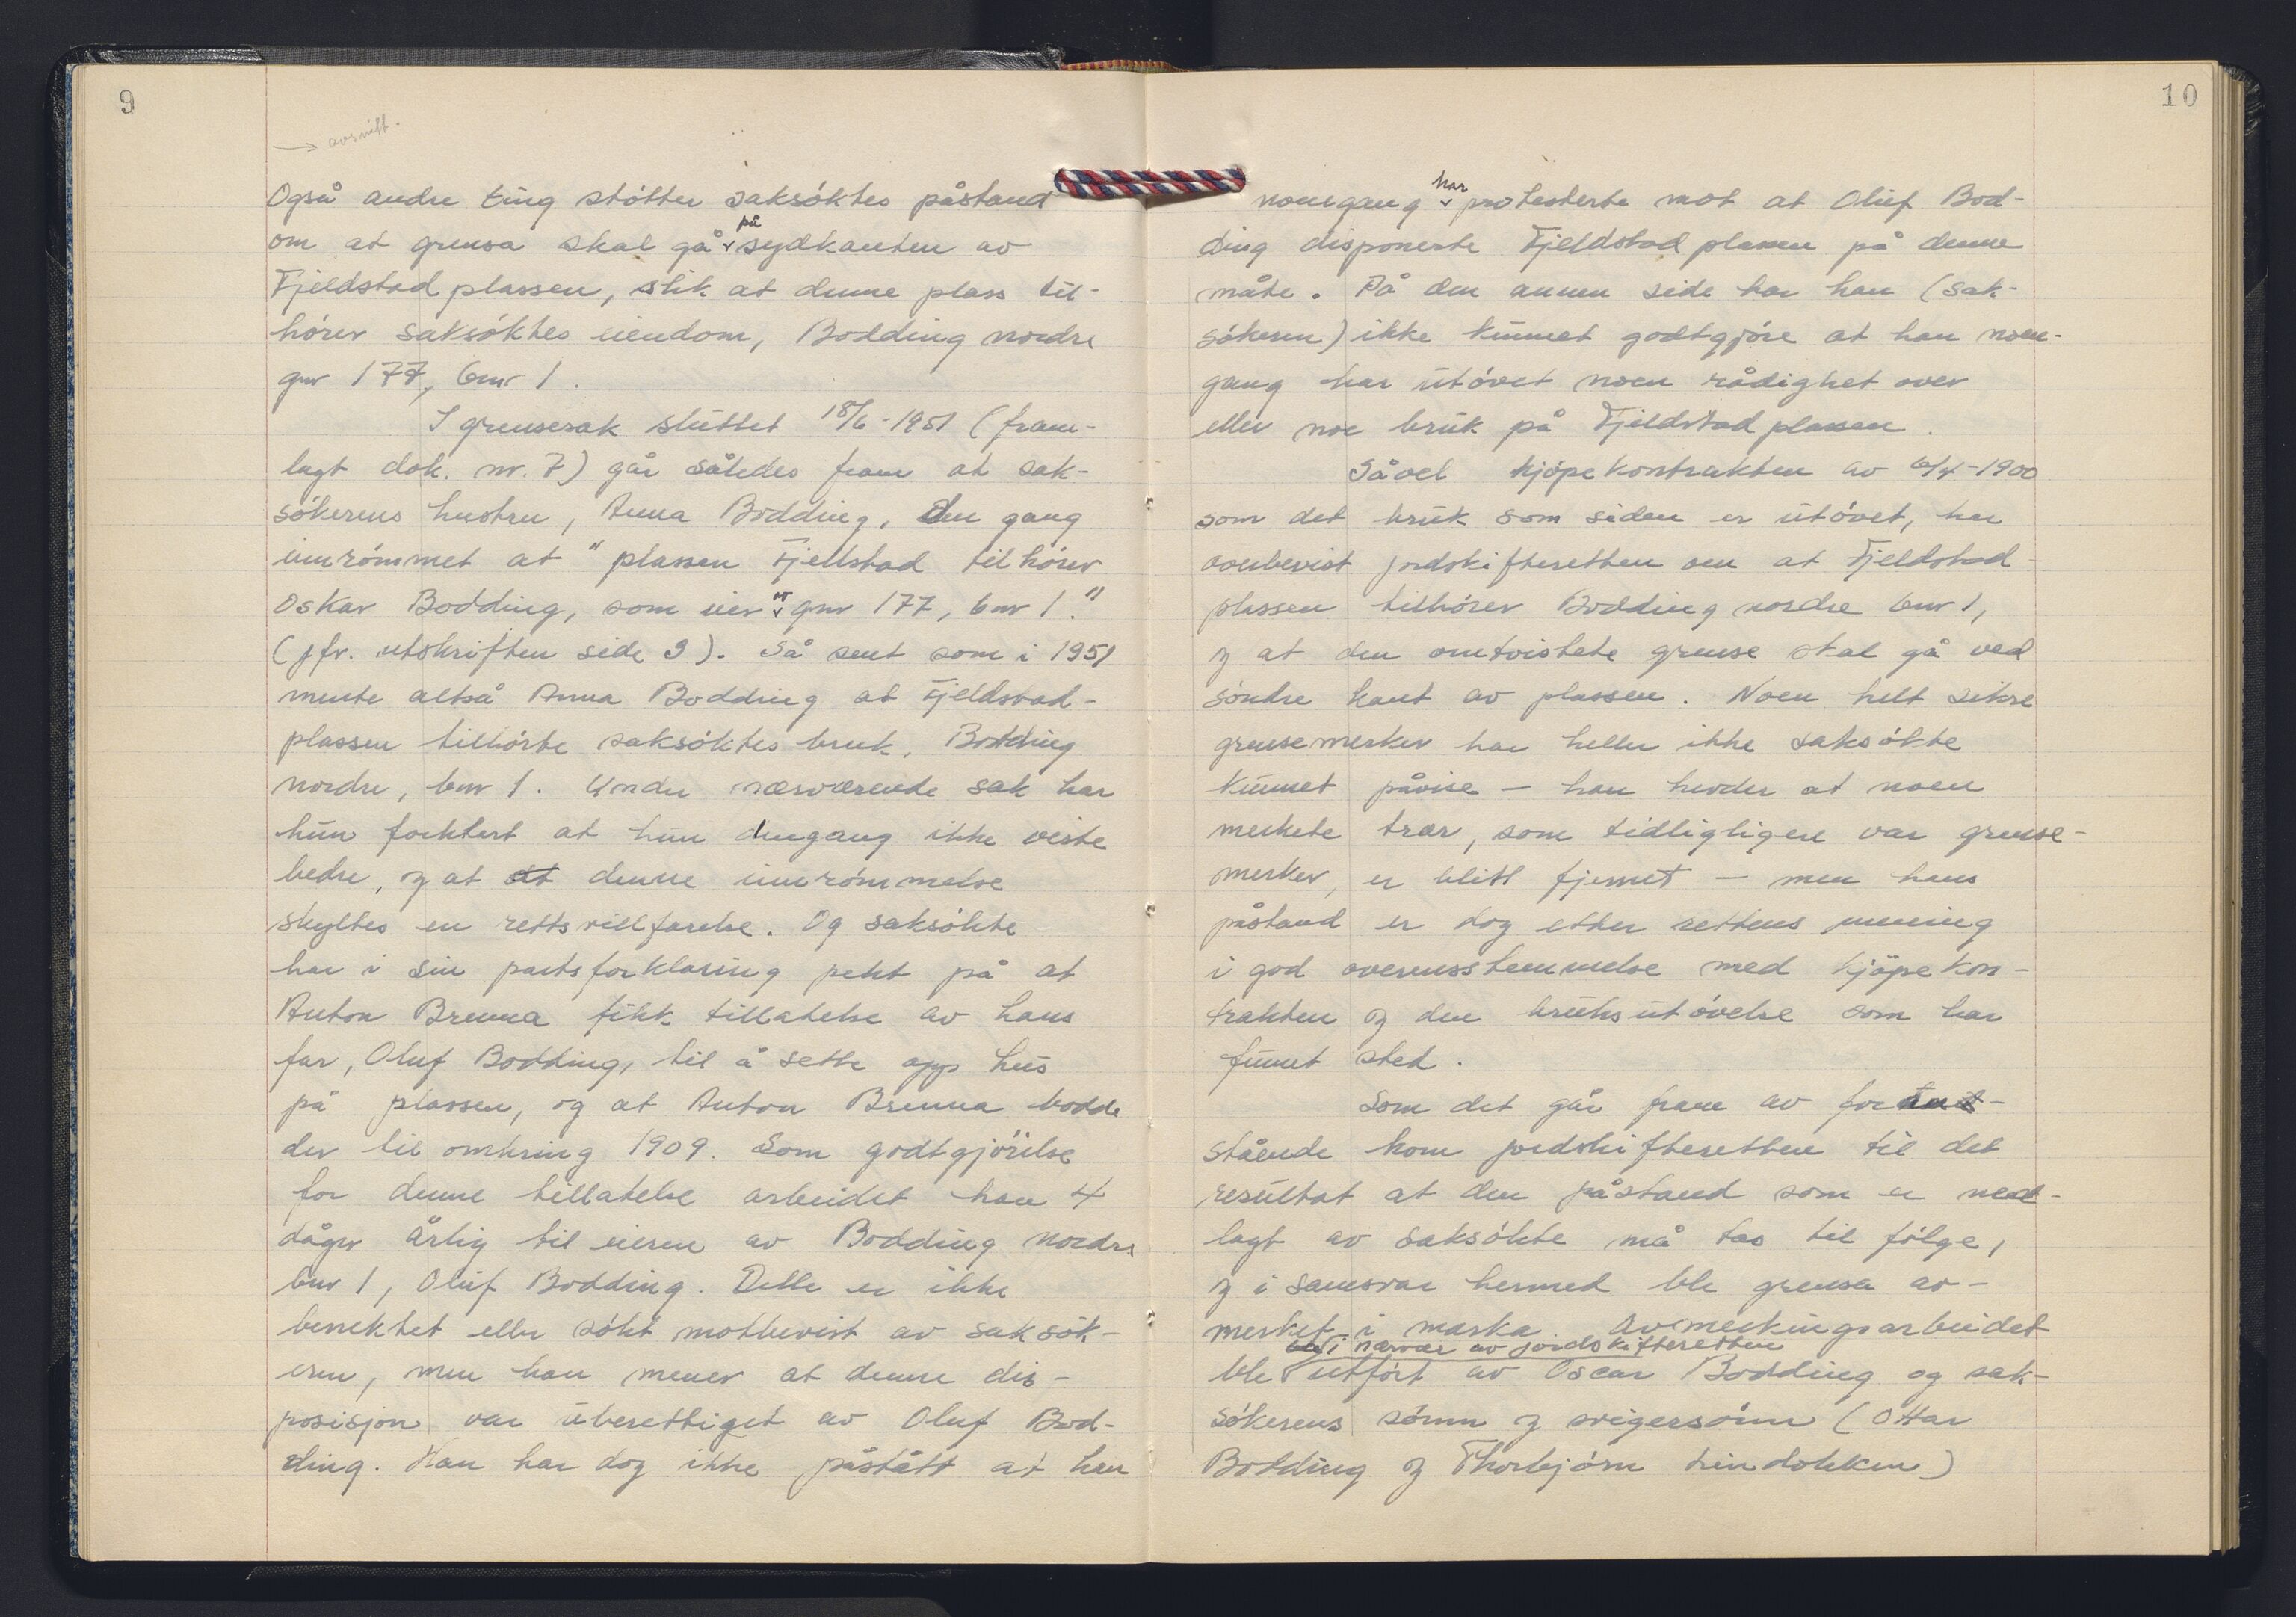 9
→ avsnitt.
Også andre ting støtter saksøktes påstand
om at grensa skal gå på sydkanten av
Fjeldstadplassen, slik at denne plass til-
hører saksøktes eiendom, Bodding nordre
gnr 177, bnr 1.
I grensesak sluttet 18/6-1951 (fram-
lagt dok. nr. 7) går således fram at sak-
søkerens hustru, Anna Bodding, den gang
innrømmet at "plassen Fjellstad tilhører
Oskar Bodding, som eier gnr 177, bnr 1."
(jfr. utskriften side 9). Så sent som i 1951
mente altså Anna Bodding at Fjeldstad-
plassen tilhørte saksøktes bruk, Bodding
nordre, bnr 1. Under nærværende sak har
hun forklart at hun dengang ikke visste
bedre, og at at denne innrømmelse
skyltes en rettsvillfarelse. Og saksøkte
har i sin partsforklaring pekt på at
Anton Brenna fikk tillatelse av hans
far, Oluf Bodding, til å sette opp hus
på plassen, og at Anton Brenna bodde
der til omkring 1909. Som godtgjørelse
for denne tillatelse arbeidet han 4
dager årlig til eieren av Bodding nordre
bnr 1, Oluf Bodding. Dette er ikke
benektet eller søkt motbevist av saksøk-
eren, men han mener at denne dis-
posisjon var uberettiget av Oluf Bod-
ding. Han har dog ikke påstått at han
10
noengang har protesterte mot at Oluf Bod-
ding disponerte Fjeldstadplassen på denne
måte. På den annen side har han (sak-
søkeren) ikke kunnet godtgjøre at han noen-
gang har utøvet noen rådighet over
eller noe bruk på Fjeldstadplassen.
Såvel kjøpekontrakten av 6/4-1900
som det bruk som siden er utøvet, har
overbevist jordskifteretten om at Fjeldstad-
plassen tilhører Bodding nordre bnr 1,
og at den omtvistete grense skal gå ved
søndre kant av plassen. Noen helt sikre
grensemerker har heller ikke saksøkte
kunnet påvise – han hevder at noen
merkete trær, som tidligligere var grense-
merker, er blitt fjernet – men hans
påstand er dog etter rettens mening
i god overensstemmelse med kjøpekon-
trakten og den bruksutøvelse som har
funnet sted.
Som det går fram av foran-
stående kom jordskifteretten til det
resultat at den påstand som er ned-
lagt av saksøkte må tas til følge,
og i samsvar hermed ble grensa av-
merket i marka. Avmerkingsarbeidet
i nærvær av jordskifteretten
ble utført av Oscar Bodding og sak-
søkerens sønn og svigersønn (Ottar
Bodding og Thorbjørn Lindokken)